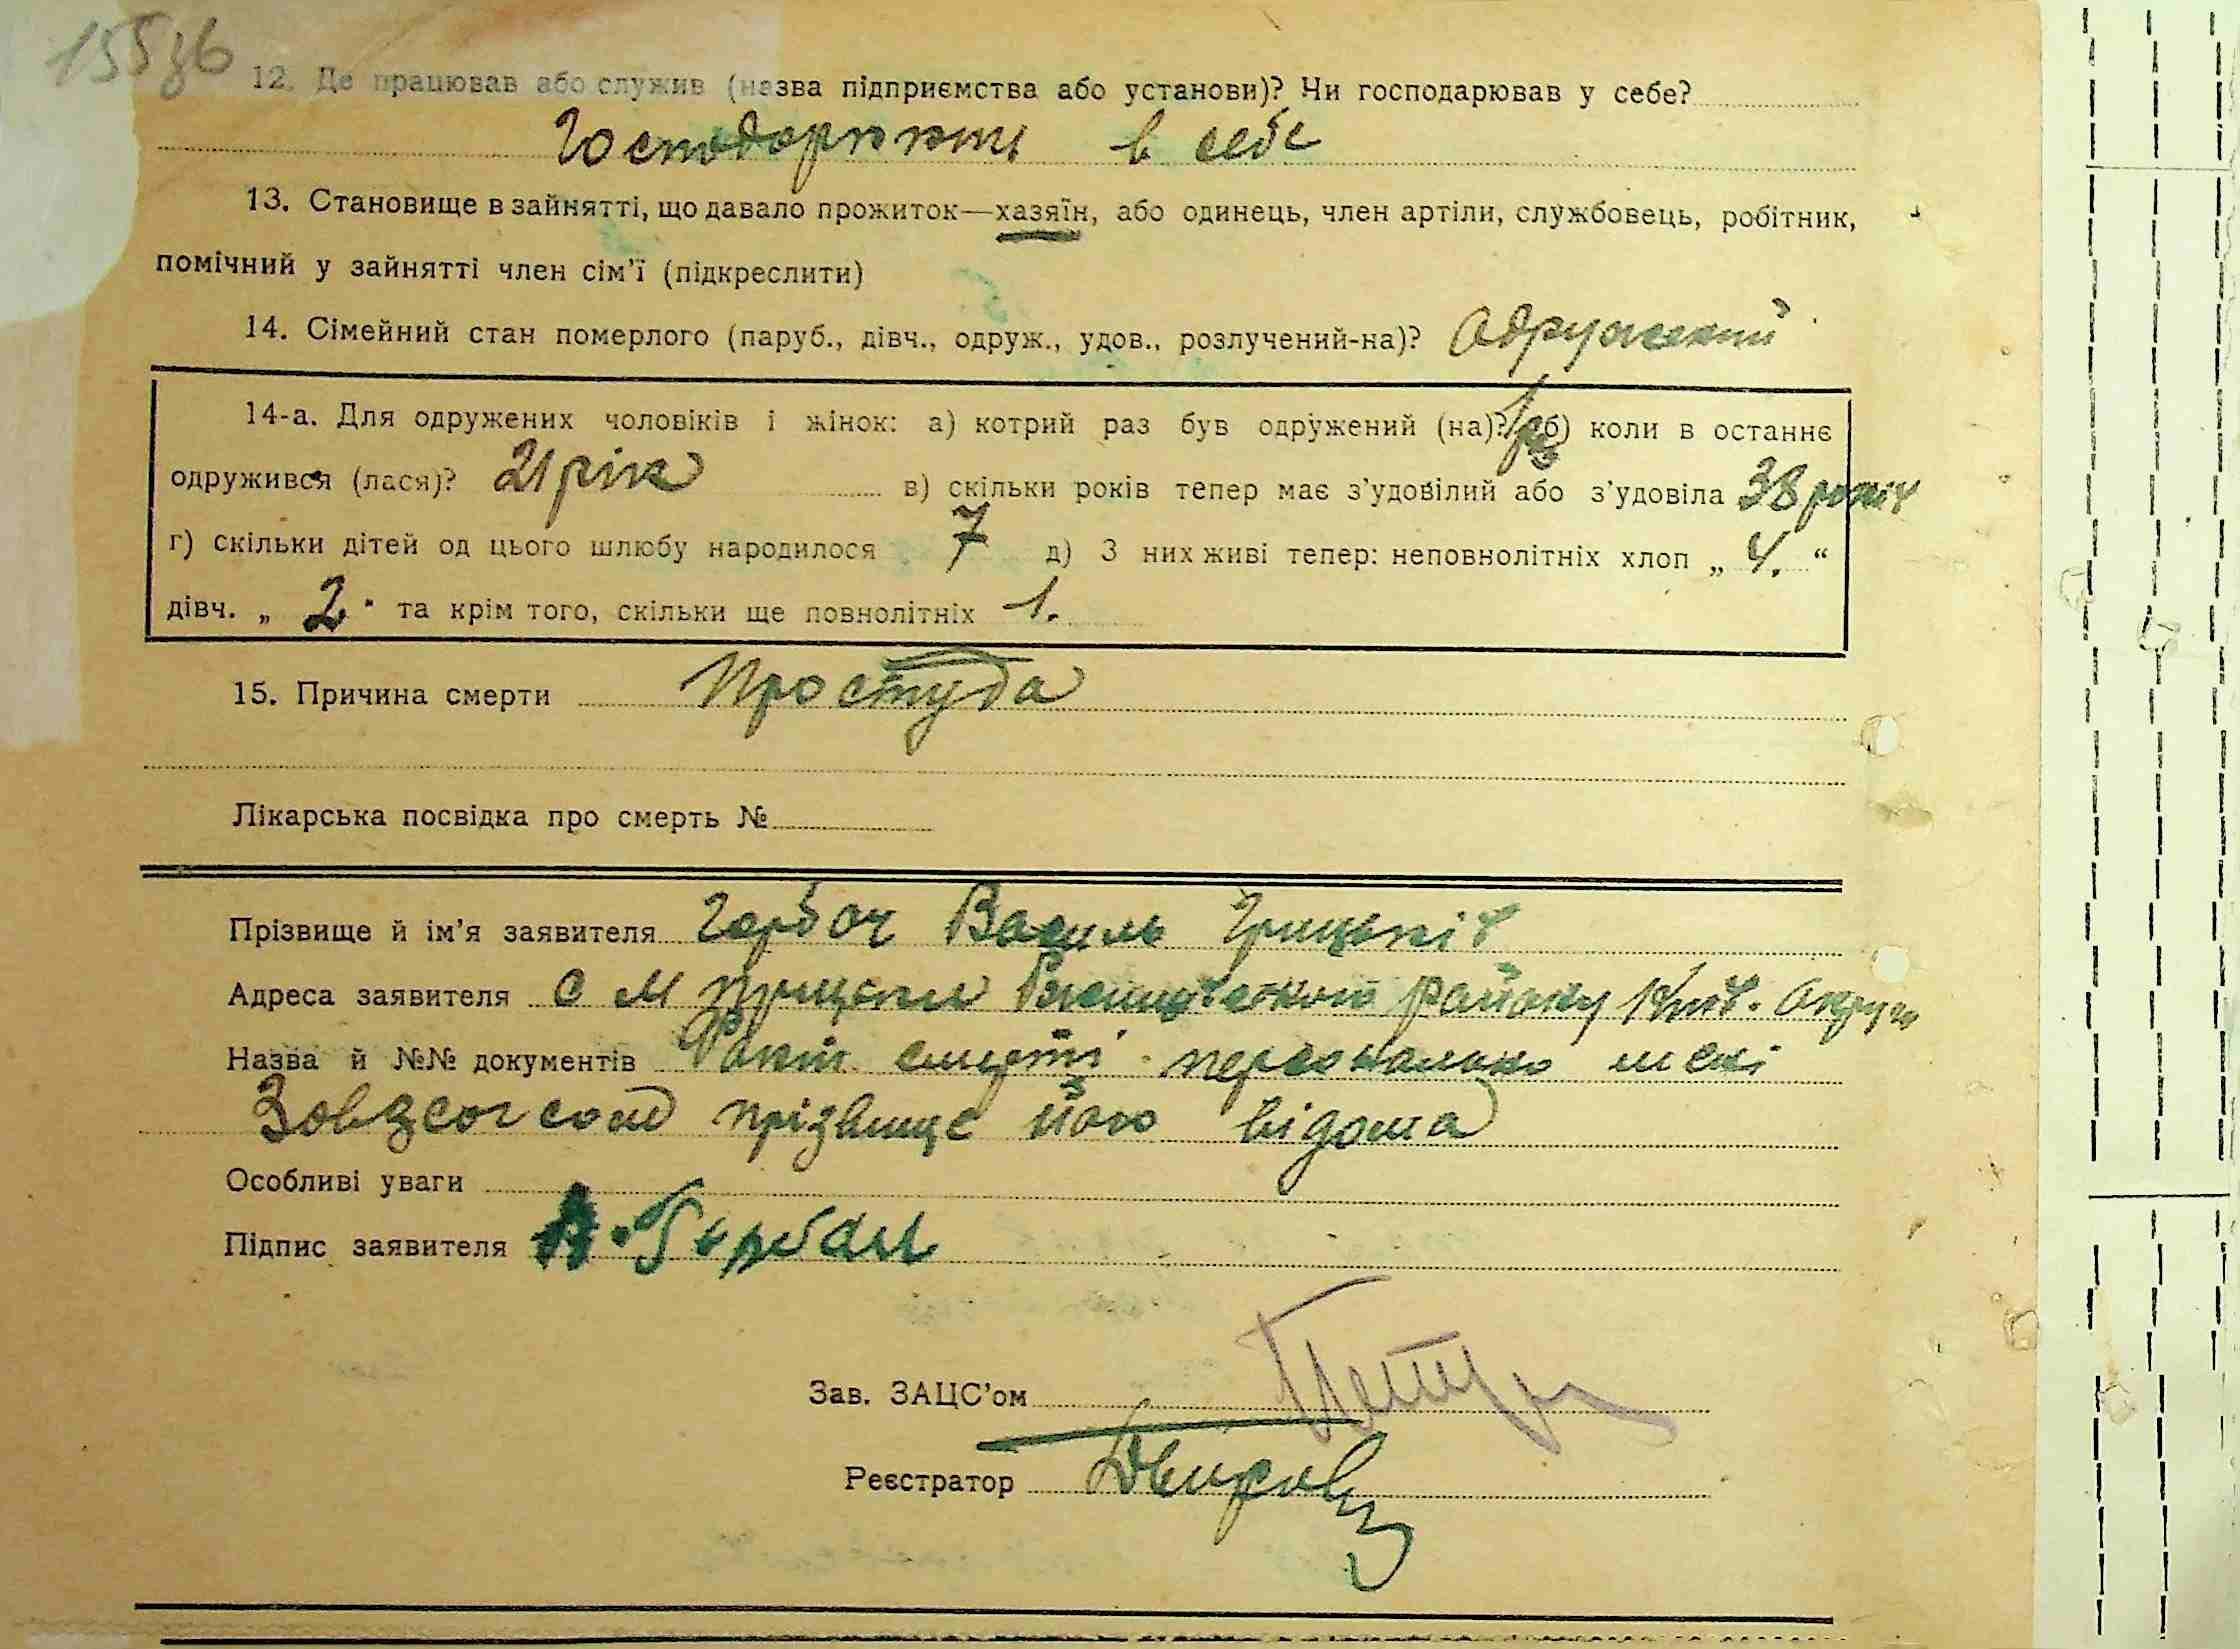 155зв
12. Де працював або служив (назва підприємства або установи)? Чи господарював у себе?
Господарюючи в себе
13. Становище в зайнятті, що давало прожиток—хазяїн, або одинець, член артіли, службовець, робітник,
помічний у зайнятті член сім'ї (підкреслити)
14. Сімейний стан померлого (паруб., дівч., одруж., удов., розлучений-на)? Одружений
14-а. Для одружених чоловіків і жінок: а) котрий раз був одружений (на)? 1 раз б) коли в останнє
одружився (лася)? 21 рік в) скільки років тепер має з'удовілий або з'удовіла 38 років
г) скільки дітей од цього шлюбу народилося 7 д) З них живі тепер: неповнолітніх хлоп „ 4. “
дівч. „ 2. " та крім того, скільки ще повнолітніх 1.
15. Причина смерти Простуда
Лікарська посвідка про смерть №
Прізвище й ім'я заявителя Горбач Василь Грицьків
Адреса заявителя с М Прицьки Ржищівського району Київ. Округи
Назва й №№ документів Факт смерті персонально мені
Завзагсом прізвище його відома
Особливі уваги
Підпис заявителя В. Горбач
Зав. ЗАЦС'ом
Реєстратор